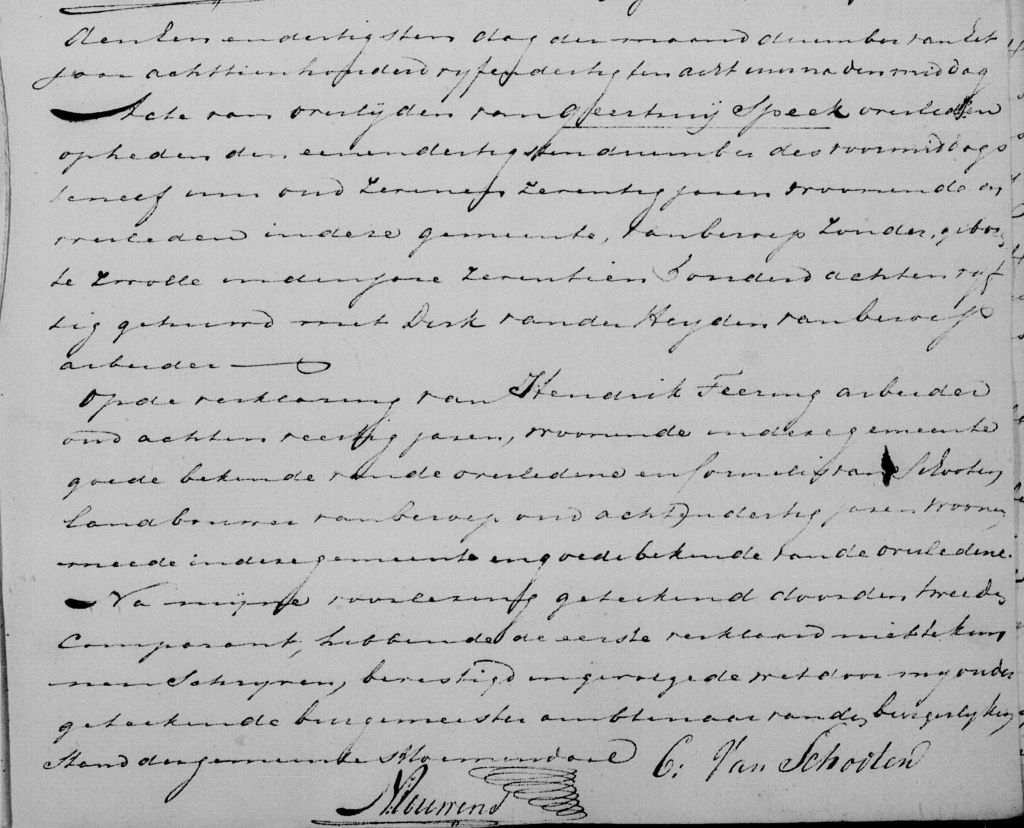 den een en dertigsten dag der maand december van het
jaar achttienhonderd vyf en dertig ten acht uuren na den middag
Acte van overlyden van Geertruij Speek overleden
opheden den eenendertigsten december des voormiddags
ten elf uuren oud zeven en zeventig jaren woonende en
overleden indese gemeente, van beroep zonder, geboren
te Zwolle inden jare zeventien honderd acht en vyf
tig gehuwd met Derk vander Heyden van beroep
arbeider
Op de verklaring van Hendrik Feering arbeider
oud acht en veertig jaren, woonende indese gemeente
goede bekende vande overledene en Cornelis van Schooten
landbouwer van beroep oud acht en dertig jaren woonen
mede in dese gemeente en goede bekende van de overledene.
Na myne voorlezing geteekend door den tweeden
Comparant, hebbende de eerste verklaard niet te kun
nen schryven, bevestigd ingevolge de wet door my onder
geteekende burgemeester ambtenaar van den burgerlyken
Stand der gemeente Bloemendaal C: Van Schooten